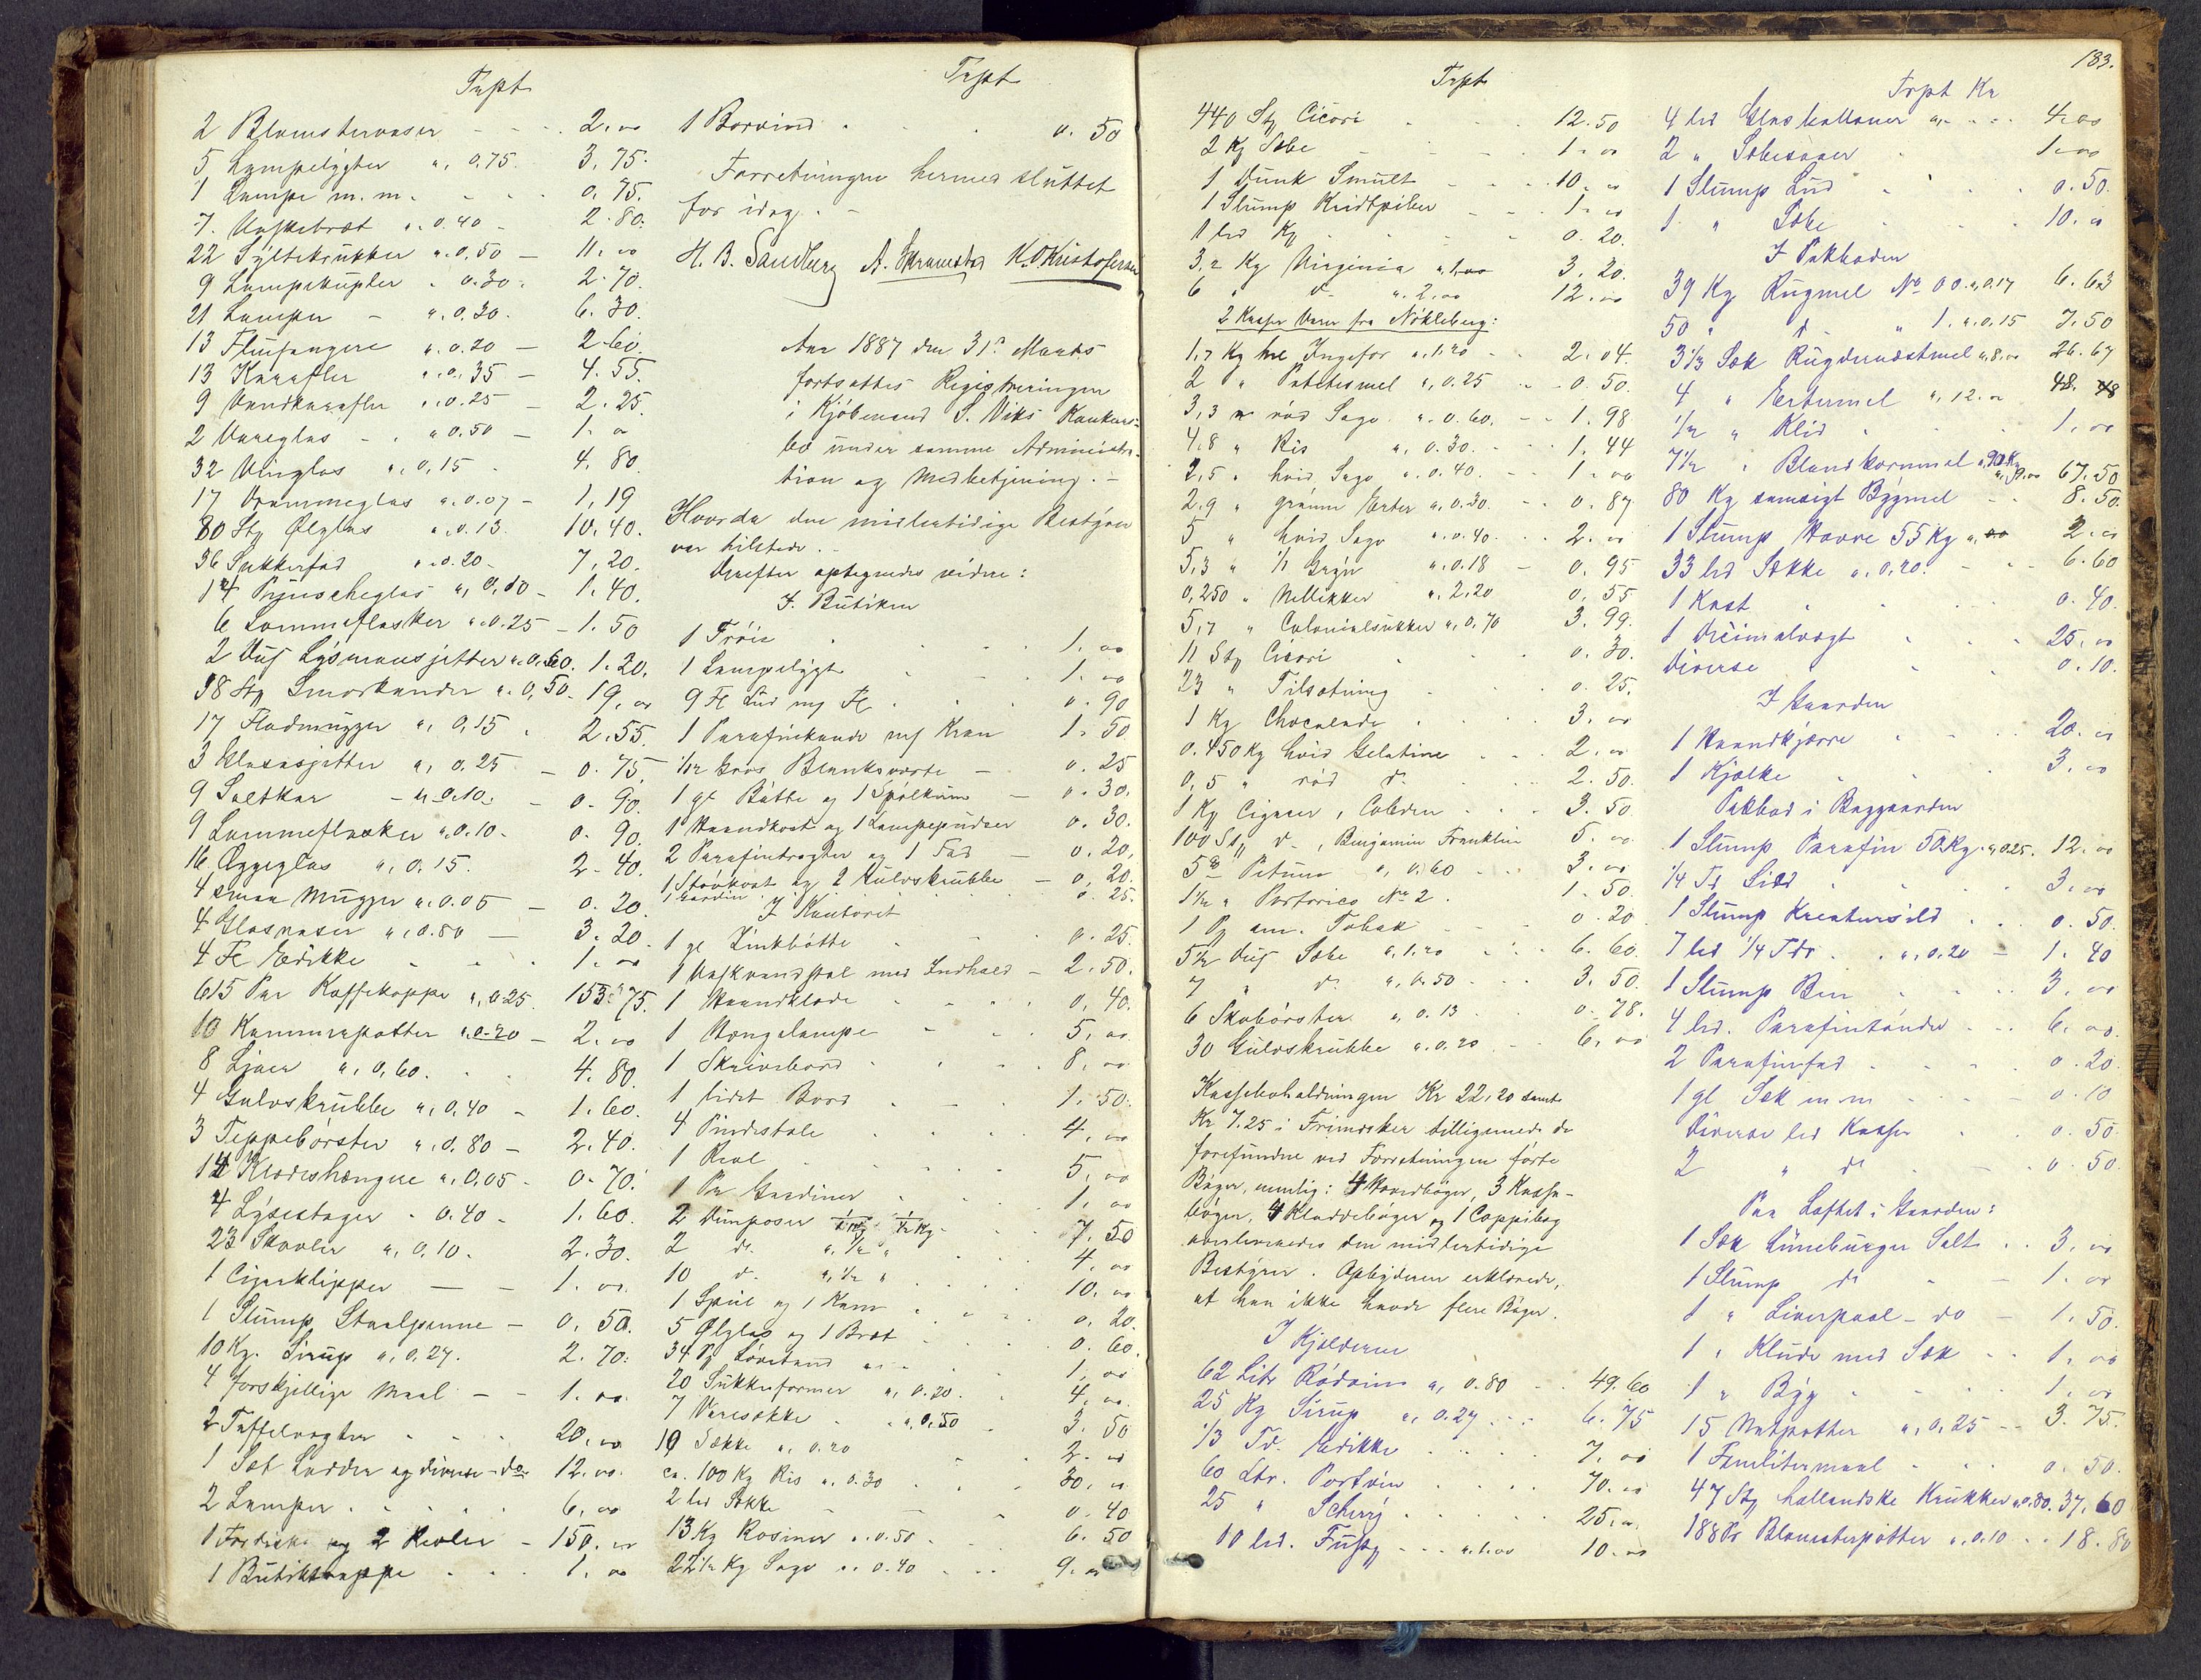 Trpt
2 Blomstervaser - - - 2.00
5 Lampelygter a, 0.75. 3.75.
1 Lampe m. m. - - - 0.75.
7. Vaskebræt a. 0.40 - 2.80.
22 Syltekrukker a. 0.50 - 11.00
9 Lampekupler - 0.30. 2.70.
21 Lamper - a. 0.30. 6.30.
13 Fluefangere a. 0.20 - 2.60.
13 Karafler a. 0.35 - 4.55.
9 Vandkarafler a. 0.25 - 2.25.
2 Vareglas - . a 0.50 - 1.00
32 Vinglas a. 0,15 - 4.80
17 Drammeglas a. 0.07 - 1,19
80 Stg Ølglas a. 0.13. 10.40.
36 Sukkerfad a. 0.20 - 7,20.
14 Pynscheglas a, 0,10 - 1.40.
6 Lommeflasker a. 0.25 - 1.50
2 Dus Lysmansjetter a. 0.60. 1.20.
38 Stg Smørkander a. 0,50 - 19.00
17 Flødemugger a, 0,15 . 2.55.
3 Glasasjetter a, 0.25 - 0.75.
9 Saltkar - a 0.10. - 0.90.
9 Lommeflasker a. 0.10. 0.90.
16 Æggeglas a, 0.15. 2.40.
4 smaa Mugger a. 0.05 - 0.20.
4 Glasvaser a. 0.80 - 3.20.
4 Fl Edikke - - - 1.00
615 Par Kaffekoppe a, 0.25. 153.75.
10 Kammerpotter a 0.20 - 2.00
8 Ljaaer a, 0,60. - - 4.80.
4 Gulvskrubbe a, 0,40 - 1.60.
3 Teppebørster a, 0.80 - 2.40.
14 Klædeshængere a, 0,05 - 0.70.
4 Lysestager - 0.40 - 1.60.
23 Skovler a, 0,10. 2.30.
1 Cigarklipper - - 1.00.
1 Slump Staalpenne - 0.50.
10 Kg. Sirup a, 0,27. 2.70.
4 forskjellige Maal - - 1.00.
2 Taffelvægter - - - 20.00
1 Sæt Lodder og diverse do. 12.00.
2 Lamper . . . . . 6.00
1 Fordisk og 2 Reoler - 150.00
1 Butiktrappe . . . 1.00
Trpt
1 Borvind . . . 0.50
Forretningen hermed sluttet
for idag. -
H. B. Sandberg A. Skramstad K. O Kristofersen
Aar 1887 den 31. Marts
fortsattes Registreringen
i Kjøbmand S. Wiks Konkurs-
bo under samme Administra-
tion og Medbetjening. -
Hvorda den midlertidige Bestyrer
var tilstede. -
Derefter optegnedes videre:
I. Butiken
1 Trøie . . . 1.00
1 Lampelygt . . . 1.00
9 Fl Lud m/ Fl . . 0.90
1 Parafinkande m/ Kran 1.50
1/12 Gros Blanksværte - 0.25
1 gl Bøtte og 1 Spølkum - 0.30.
1 Haandkost og 1 Lampepudser 0.30.
2 Parafintragter og 1 Fad - 0.20.
1 Støvkost og 2 Gulvskrubbe - 0.20.
1 Gardin . . . 0.25.
I Kontoret
1 gl Zinkbøtte . . 0.25.
1 Vaskvandstol med Indhold - 2.50.
1 Haandklæde . . 0,40.
1 Hængelampe - - 5.00
1 Skrivebord . . 8.00
1 lidet Bord . - 1.50.
4 Pindestole . . 4.00
1 Reol . . . 5.00
1 Par Gardiner . . 1.00
2 Dunposer 1/2 Kg - 7.50
2 do. a, 1/2 " 4.00
10 d. a, 1/2 " 10.00
1 Speil og 1 Kam . . 0.20.
5 Ølglas og 1 Bræt - 0.60.
34 Pg Løvetand a . - 1.00
20 Sukkerformer a, 0.20. 4.00
7 Varesække . a, 0,50 3.50
10 Sække a, 0.20 2.00
ca. 100 Kg Ris a. 0.30 . 30.00
2 led Sække - - - 0.40
13 Kg Rosiner a. 0.50 . 6.50
22 1/2 Kg Sago a. 0.40 . . 9.00
Trpt
440 Stg Cicori . . 12.50
2 Kg Sæbe - - - 1.00
1 Dunk Smult - - 10.00
1 Slump Kridtpiber - - 1.00
1 led Kg . . - 0.20.
3,2 Kg Virginia a, 1.00 3.20.
6 " d - a. 2.00 12.00
2 Kasser Varer fra Nökleberg:
1,7 Kg hel Ingefær a, 1.20 - 2.04.
2 " Potetesmel a, 0.25 - 0.50.
3,3 " rød Sago a. 0.60. - 1.98
4,8 " Ris a, 0.30. - 1,44
2,5 " hvid Sago a. 0.40. - 1.00
2.9 " grønne Erter a, 0.30. - 0.87
5 " hvid Sago a. 0.40 . 2.00
5,3 " 1/1 Gryn a. 0.18 - 0.95
0,250 " Nellikker a. 2,20 0.55
5,7 " Colonialsukker a, 0,70 3.99.
11 Stg Cicori . . 0.30.
23 " Tilsætning . . 0.25.
1 Kg Chocolade . . 3.00
0.450 Kg hvid Gelatine . . 2.00
0,5 " rød d. . . 2.50.
1 Kg Cigarer, Cobden . . 3.50
100 St, d -, Benjamin Franklin 5.00
5 Petum a, 0.60 . . 3.00
1 1/2 " Portorico No 2 . 1.50.
1 Pg am. Tobak - - 0.20
5 1/2 Dus Sæbe a, 1.20 . . 6.60.
7 " d. a, 0.50 . . 3.50.
6 Skobørster a, 0.13 - 0.78.
30 Gulvskrubbe a. 0.20 . 6.00
Kassebeholdningen Kr 22.20 samt
Kr 7.25 i Frimærker tilligemed de
forefundne ved Forretningen førte
Bøger, nemlig: 4 Hovedbøger, 3 Kasse-
bøger, 4 Kladdebøger og 1 Coppibog
overleveredes den midlertidige
Bestyrer. Opbyderen erklærede,
at han ikke havde flere Bøger.
I Kjælderen
62 Litr Rødvin a, 0.80 - 49.60
25 Kg Sirup a, 0.27 . . . 6.75
1/3 Td. Edikke . . . 7.00
60 Ltr. Portvin . . . 70.00
25 " Scherry . . . 25.00
10 led. Fustg - - - a, 1.00 10.00
183.
Trpt Kr
4 led Glasballoner a, - - 4.00
2 " Sæbesaaer . 1.00
1 Slump Lud . . . 0.50.
1. " Sæbe . . . 10.00
I Pakboden
39 Kg Rugmel No 00. a, 0.17 6.63
50 " d - " 1. a. 0.15 7.50
3 1/3 Sæk Rugdernæstmel a, 8.00 26.67
4 " Ertermel a, 12.00 48.
1/2 " Klid . . . 1.00
7 1/2 " Blandkornmel a, 90 Kg a, 9.00 67.50
80 Kg samsigt Bygmel - - 8.50.
1 Slump Havre 55 Kg a, 2.00
33 led Sække a, 0.20. - - 6.60
1 Kost . . . 0.40.
1 Decimalvægt . . . 25.00
Diverse . . . 0.10.
I Gaarden
1 Haandkjærre . . . 20.00
1 Kjælke . . . 3.00
Pakbod i Baggaarden
1 Slump Parafin 50 Kg. a, 0.25. 12.00
1/4 Td Sild . . . 3.00
1 Slump Kreatursild . . 0.50.
7 led 1/4 Tdr . . a, 0,20 - 1.40
1 Slump Ben . . . 3.00
4 led. Parafintønder . . . 6.00.
2 Parafinfad . . . 0.20.
1 gl Sæk m m . . . 0.10
Diverse led Kasser . . 0.50.
2 " d. . . 0.50.
Paa Loftet i Gaarden:
1 Sæk Lüneburger Salt . . 3.00
1 Slump do - - 1.00
1 " Liverpool - do - 1.50.
1 " Klude med Sæk . . 1.00
1 " Byg . . . 1.00
15 Natpotter a, 0,25 - - 3.75.
1 Familitermaal . . . 0.50.
47 Stg hollandske Krukker a, 0.80. 37.60
188 Pr Blomsterpotter a, 0.10 . . 18.80